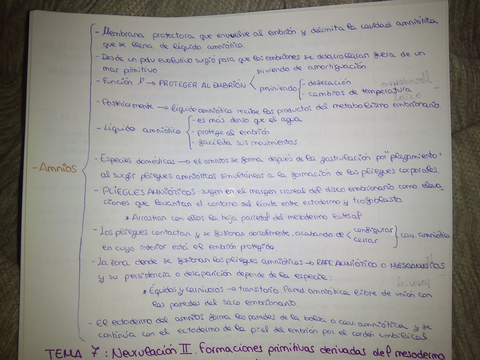 - Membrana protectora que envuelve al embrión y delimita la cavidad amniótica
que se llena de líquido amniótico.
- Desde un pdv evolutivo surgió para que los embriones se desarrollasen fuera de un
mar primitivo
sirviendo de amortiguación
- Función 1ª → PROTEGER AL EMBRIÓN
previniendo
- desecación
- cambios de temperatura
- Posteriormente → líquido amniótico recibe los productos del metabolismo embrionario.
- Líquido amniótico
- es más denso que el agua
- protege al embrión
- facilita sus movimientos
- Amnios
- Especies domésticas → el amnios se forma después de la gastrulación por "plegamiento"
al surgir pliegues amnióticos simultáneos a la formación de los pliegues corporales.
- PLIEGUES AMNIÓTICOS: surgen en el margen craneal del disco embrionario como eleva
ciones que levantan el contorno del límite entre ectodermo y trofoblasto
* Arrastran con ellos la hoja parietal del mesodermo lateral
- Los pliegues contactan y se fusionan dorsalmente, acabando de
configurar
cerrar
cav. amniótica
en cuyo interior está el embrión protegido
- La zona donde se fusionan los pliegues amnióticos → RAFE AMNIÓTICO o MESOAMNIOS
y su persistencia o desaparición depende de la especie:
* Équidos y carnívoros → transitorio. Pared amniótica libre de unión con
las paredes del saco embrionario
- El ectodermo del amnios forma las paredes de la bolsa o cav. amniótica y se
continúa con el ectodermo de la piel del embrión por el cordón umbilical
TEMA 7: Neurulación II. Formaciones primitivas derivadas del mesodermo